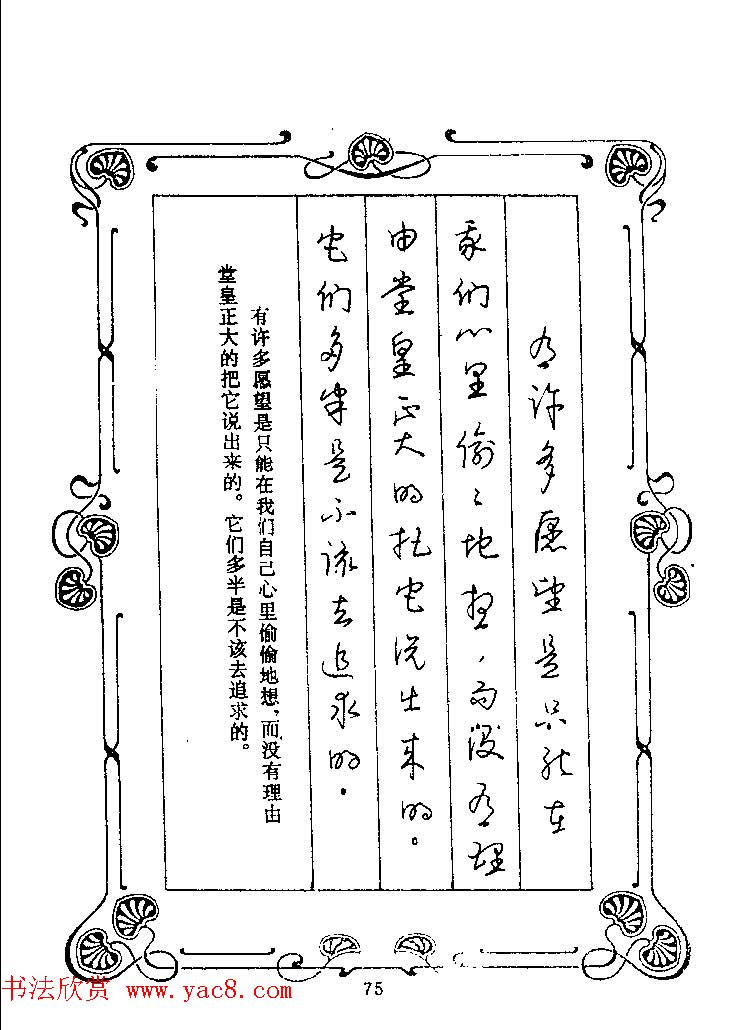 有许多愿望是只能在
我们心里偷偷地想，而没有理
由堂皇正大的把它说出来的。
它们多半是不该去追求的。
有许多愿望是只能在我们自己心里偷偷地想，而没有理由
堂皇正大的把它说出来的。它们多半是不该去追求的。
75
书法欣赏 www.yac8.com